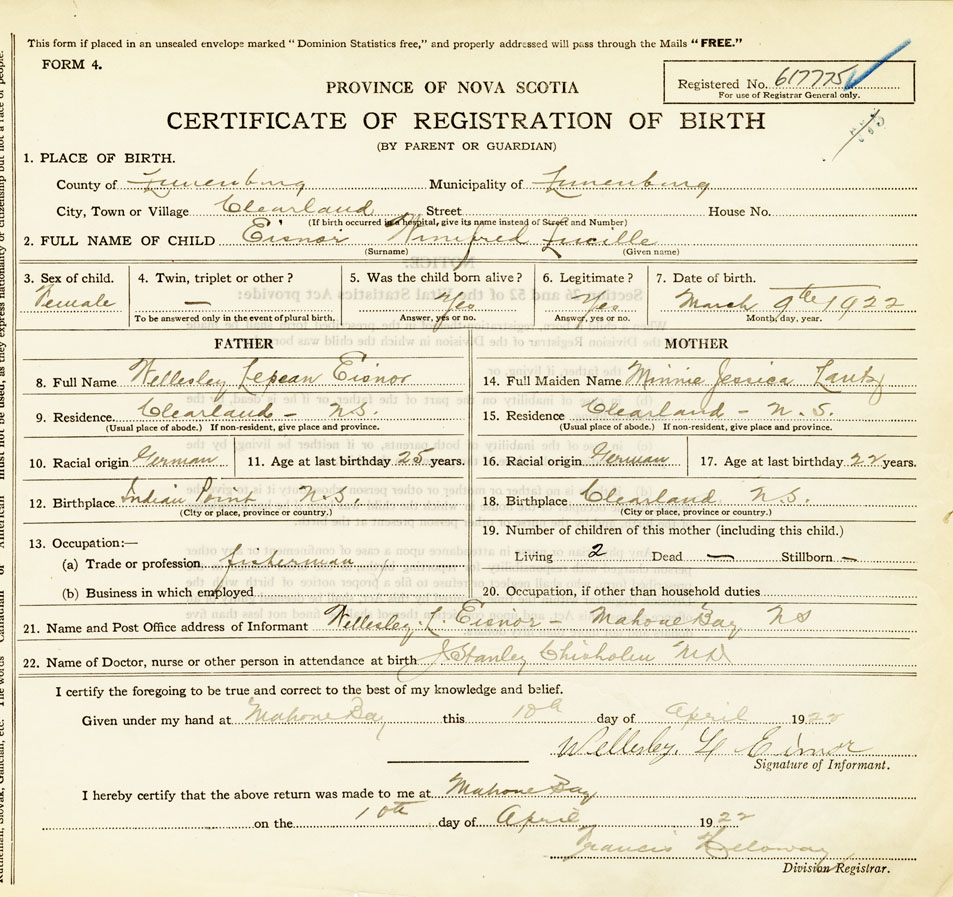 This form if placed in an unsealed envelope marked "Dominion Statistics free," and properly addressed will pass through the Mails "FREE."
FORM 4.
Registered No. 617775
For use of Registrar General only.
PROVINCE OF NOVA SCOTIA
CERTIFICATE OF REGISTRATION OF BIRTH
(BY PARENT OR GUARDIAN)
1. PLACE OF BIRTH.
County of Lunenburg Municipality of Lunenburg
City, Town or Village Clearland Street House No.
(If birth occurred in a hospital, give its name instead of Street and Number)
2. FULL NAME OF CHILD Eisnor Winifred Lucille
(Surname) (Given name)
3. Sex of child. 4. Twin, triplet or other? 5. Was the child born alive? 6. Legitimate? 7. Date of birth.
Female — Yes Yes March 9th 1922
To be answered only in the event of plural birth. Answer, yes or no. Answer, yes or no. Month, day, year.
FATHER MOTHER
8. Full Name Wellesley Lepean Eisnor 14. Full Maiden Name Minnie Jessica Lantz
9. Residence Clearland - N.S. 15. Residence Clearland - N.S.
(Usual place of abode.) If non-resident, give place and province. (Usual place of abode.) If non-resident, give place and province.
10. Racial origin German 11. Age at last birthday 25 years. 16. Racial origin German 17. Age at last birthday 22 years.
12. Birthplace Indian Point N.S. 18. Birthplace Clearland N.S.
(City or place, province or country.) (City or place, province or country.)
13. Occupation:— 19. Number of children of this mother (including this child.)
(a) Trade or profession fisherman Living 2 Dead — Stillborn —
(b) Business in which employed 20. Occupation, if other than household duties
21. Name and Post Office address of Informant Wellesley. L. Eisnor - Mahone Bay NS
22. Name of Doctor, nurse or other person in attendance at birth J Stanley Chisholm MD
I certify the foregoing to be true and correct to the best of my knowledge and belief.
Given under my hand at Mahone Bay this 10th day of April 1922
Wellesley. L Eisnor
Signature of Informant.
I hereby certify that the above return was made to me at Mahone Bay
on the 10th day of April 1922
Francis Heloway
Division Registrar.